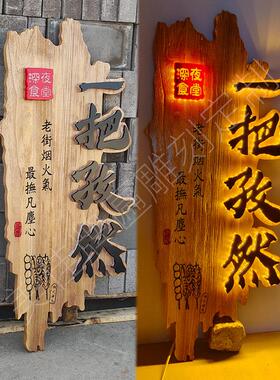 深夜
食堂
一把孜然
老街烟火氣
最撫凡塵心
深夜
食堂
一把孜然
老街烟火氣
最撫凡塵心